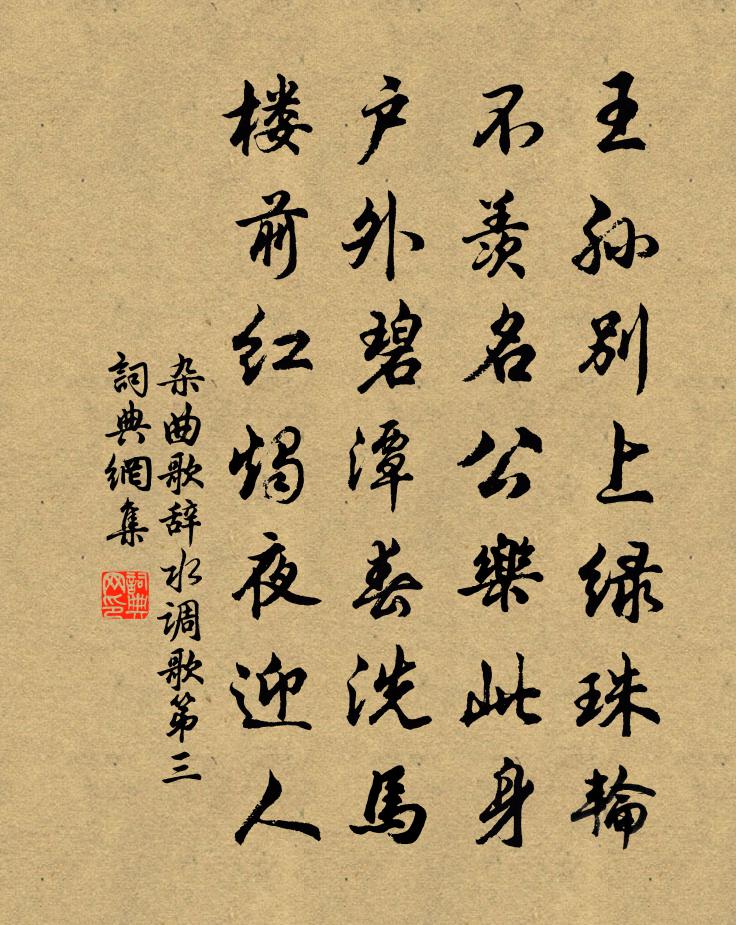 王孙别上绿珠轮
不羡名公樂此身
户外碧潭春洗馬
楼前红烛夜迎人
杂曲歌辞水调歌第三
詞典網集
詞典网印